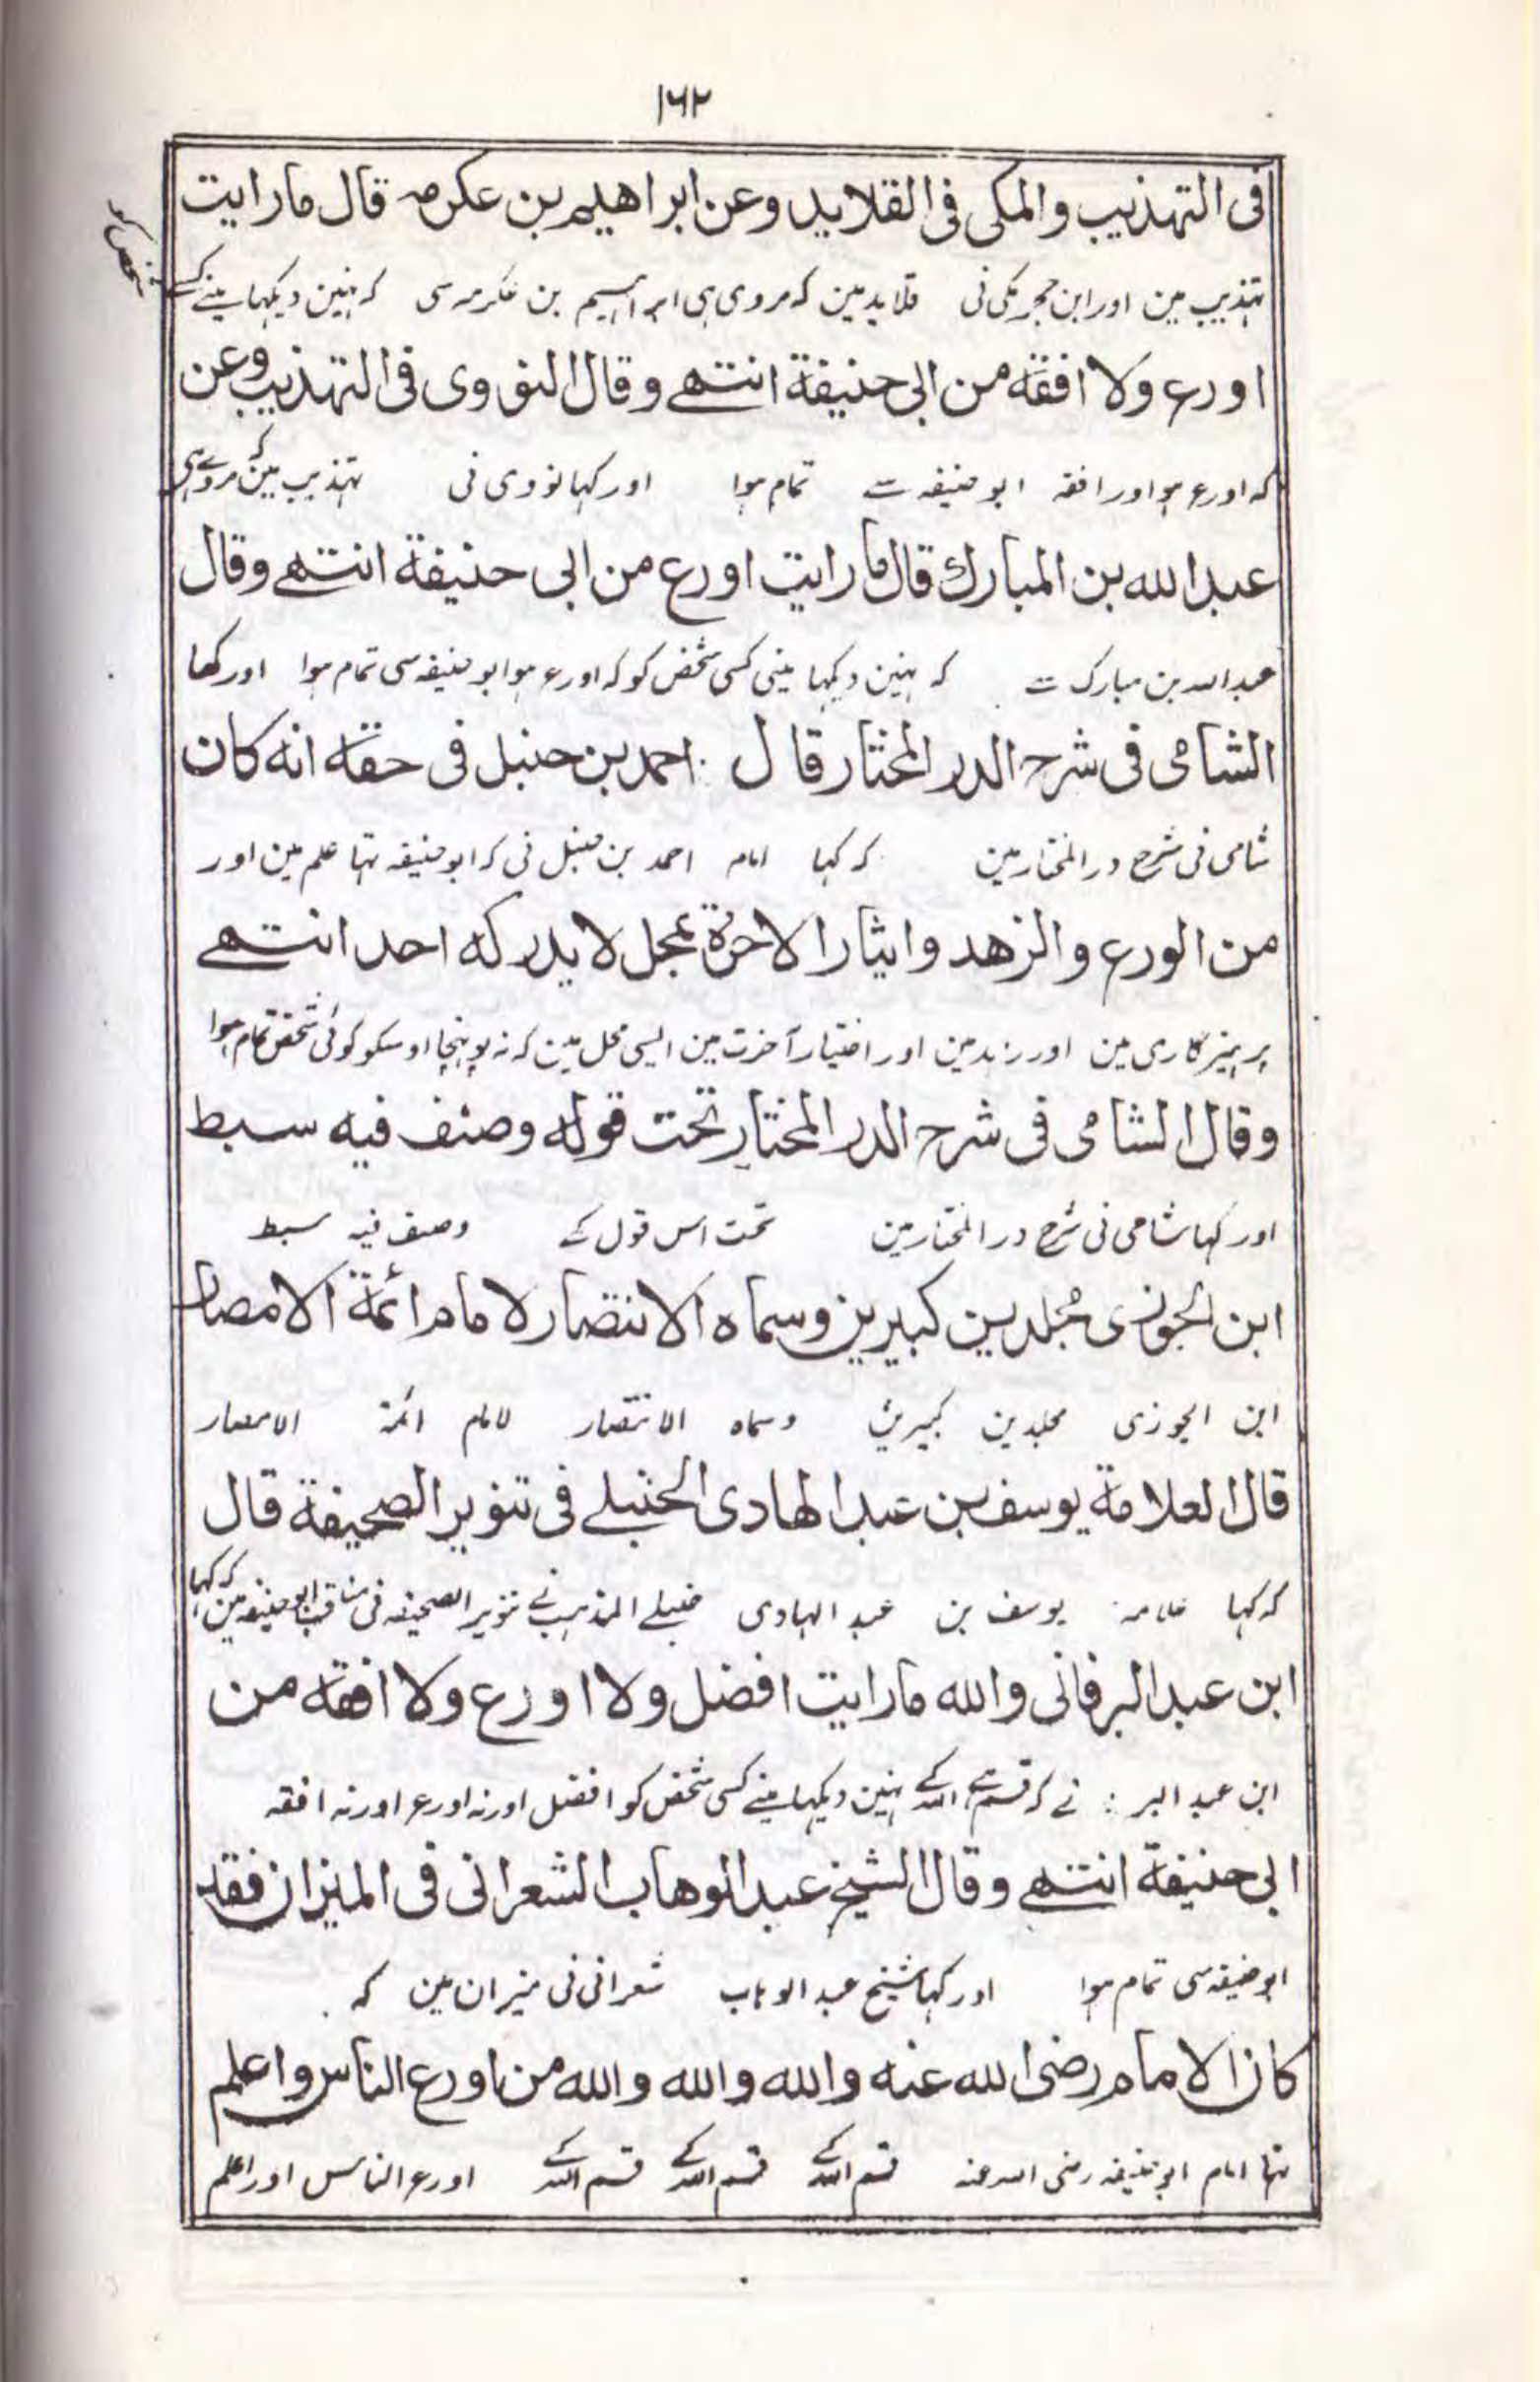 ۱۶۲
فی التهذیب والمکی فی القلاید وعن ابراهیم بن عکرمه قال مارایت
تہذیب مین اور ابن حجر مکی نی قلاید مین کہ مروی ہی ابراہیم بن عکرمہ سی کہ نہین دیکہا مینے کسے
شخص کو
اورع ولا افقه من ابی حنیفة انتهے وقال النووی فی التهذیب وعن
کہ اورع ہو اور افقہ ابو حنیفہ سے تمام ہوا اور کہا نووی نی تہذیب مین کہ مروے ہی
عبد الله بن المبارك قال ما رایت اورع من ابی حنیفة انتهے وقال
عبد اللہ بن مبارک سے کہ نہین دیکہا مینی کسی شخص کو کہ اورع ہو ابو حنیفہ سی تمام ہوا اور کہا
الشامی فی شرح الدر المختار قال احمد بن حنبل فی حقه انه کان
شامی نی شرح در المختار مین کہ کہا امام احمد بن حنبل نی کہ ابو حنیفہ تہا علم مین اور
من الورع والزهد وایثار الاخرة بمحل لا یدرکه احد انتهے
پرہیزگاری مین اور زہد مین اور اختیار آخرت مین ایسی محل مین کہ نہ پوہنچا اوسکو کوئی شخص تمام ہوا
وقال الشامی فی شرح الدر المختار تحت قوله وصنف فیه سبط
اور کہا شامی نی شرح در المختار مین تحت اس قول کے وصنف فیہ سبط
ابن الجوزی مجلدین کبیرین وسماه الانتصار لامام ائمة الامصار
ابن الجوزی مجلدین کبیرین وسماہ الانتصار لامام ائمۃ الامصار
قال العلامة یوسف بن عبد الهادی الحنبلے فی تنویر الصحیفة قال
کہ کہا علامہ یوسف بن عبد الہادی حنبلے المذہب نے تنویر الصحیفہ فی مناقب ابو حنیفہ مین کہ کہا
ابن عبد البر فانی والله مارایت افضل ولا اورع ولا افقه من
ابن عبد البر نے کہ قسم ہے اللہ کے نہین دیکہا مینے کسی شخص کو افضل اور نہ اورع اور نہ افقہ
ابی حنیفة انتهے وقال الشیخ عبد الوهاب الشعرانی فی المیزان فقد
ابو حنیفہ سی تمام ہوا اور کہا شیخ عبد الوہاب شعرانی نی میزان مین کہ
کان الامام رضی الله عنه والله والله والله من اورع الناس واعلم
تہا امام ابو حنیفہ رضی اللہ عنہ قسم اللہ کے قسم اللہ کے قسم اللہ کے اورع الناس اور اعلم